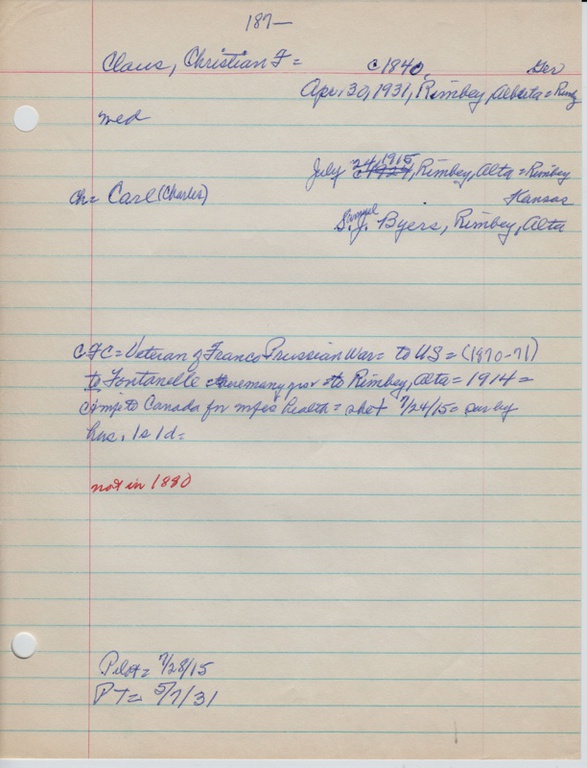 187—
Claus, Christian F = c1840, Ger
Apr. 30, 1931, Rimbey, Alberta = Rimby
wed
July 24, 1915, Rimbey, Alta = Rimbey
ch = Carl (Charles) Kansas
Samuel
S. J. Byers, Rimbey, Alta
CFC = Veteran of Franco Prussian War = to US = (1870-71)
to Fontanelle = there many yrs = to Rimbey, Alta = 1914 =
came to Canada for wife's health = she + 7/24/15 = sur by
hus, 1s 1d =
not in 1880
Pilot = 7/28/15
PT = 5/7/31